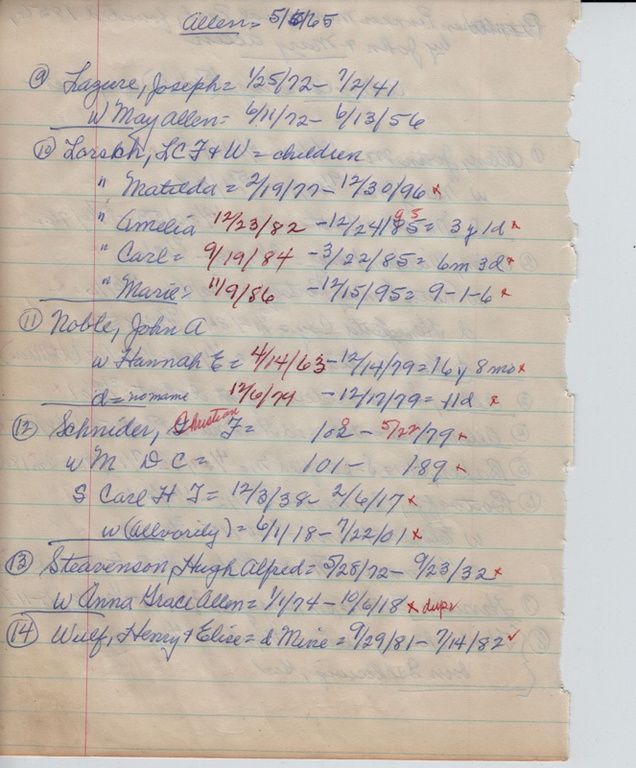 Allen = 5/5/65
⑨ Lazure, Joseph = 1/25/72 - 7/2/41
w May Allen = 6/11/72 - 6/13/56
⑩ Lorsch, LCF & W = children
" Matilda = 2/19/77 - 12/30/96 x
" Amelia 12/23/82 - 12/24/85 = 3y 1d x
" Carl = 9/19/84 - 3/22/85 = 6m 3d x
" Marie = 11/9/86 - 12/15/95 = 9-1-6 x
⑪ Noble, John A
w Hannah E = 4/14/63 - 12/14/79 = 16y 8mo x
d = no name 12/6/79 - 12/17/79 = 11d x
⑫ Schnider, Christian F = - 5/22/79 x
w M D C = 101 - 189 x
S Carl H F = 12/3/38 - 2/6/17 x
w (Allvorily) = 6/1/18 - 7/22/01 x
⑬ Steavenson, Hugh Alfred = 5/28/72 - 9/23/32 x
w Anna Grace Allen = 1/1/74 - 10/6/18 x dup✓
⑭ Wulf, Henry & Elise = d Mine = 9/29/81 - 7/14/82 ✓